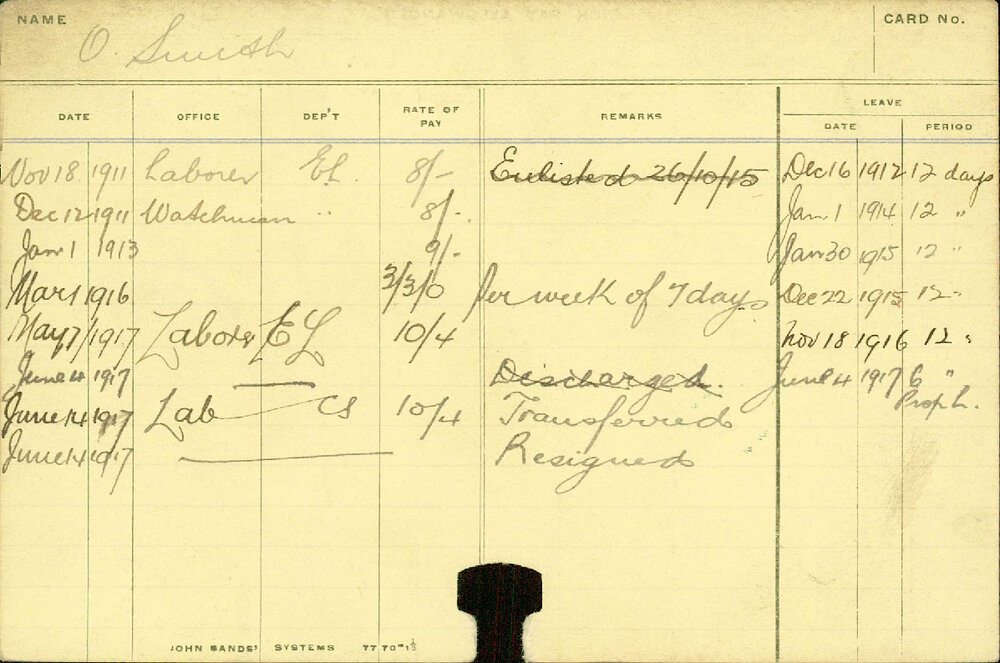 NAME O. Smith CARD No.
DATE OFFICE DEP'T RATE OF PAY REMARKS LEAVE
DATE PERIOD
Nov 18 1911 Laborer EL. 8/- Enlisted 26/10/15 Dec 16 1912 12 days
Dec 12 1911 Watchman " 8/-. Jan 1 1914 12 "
Jan 1 1913 9/- Jan 30 1915 12 "
Mar 1 1916 3/3/0 per week of 7 days Dec 22 1915 12 "
May 7/1917 Laborer EL 10/4 Nov 18 1916 12 "
June 4 1917 — Discharged. June 4 1917 6 "
Proph.
June 14 1917 Lab — CS 10/4 Transferred
June 14 1917 — Resigned
JOHN SANDS' SYSTEMS